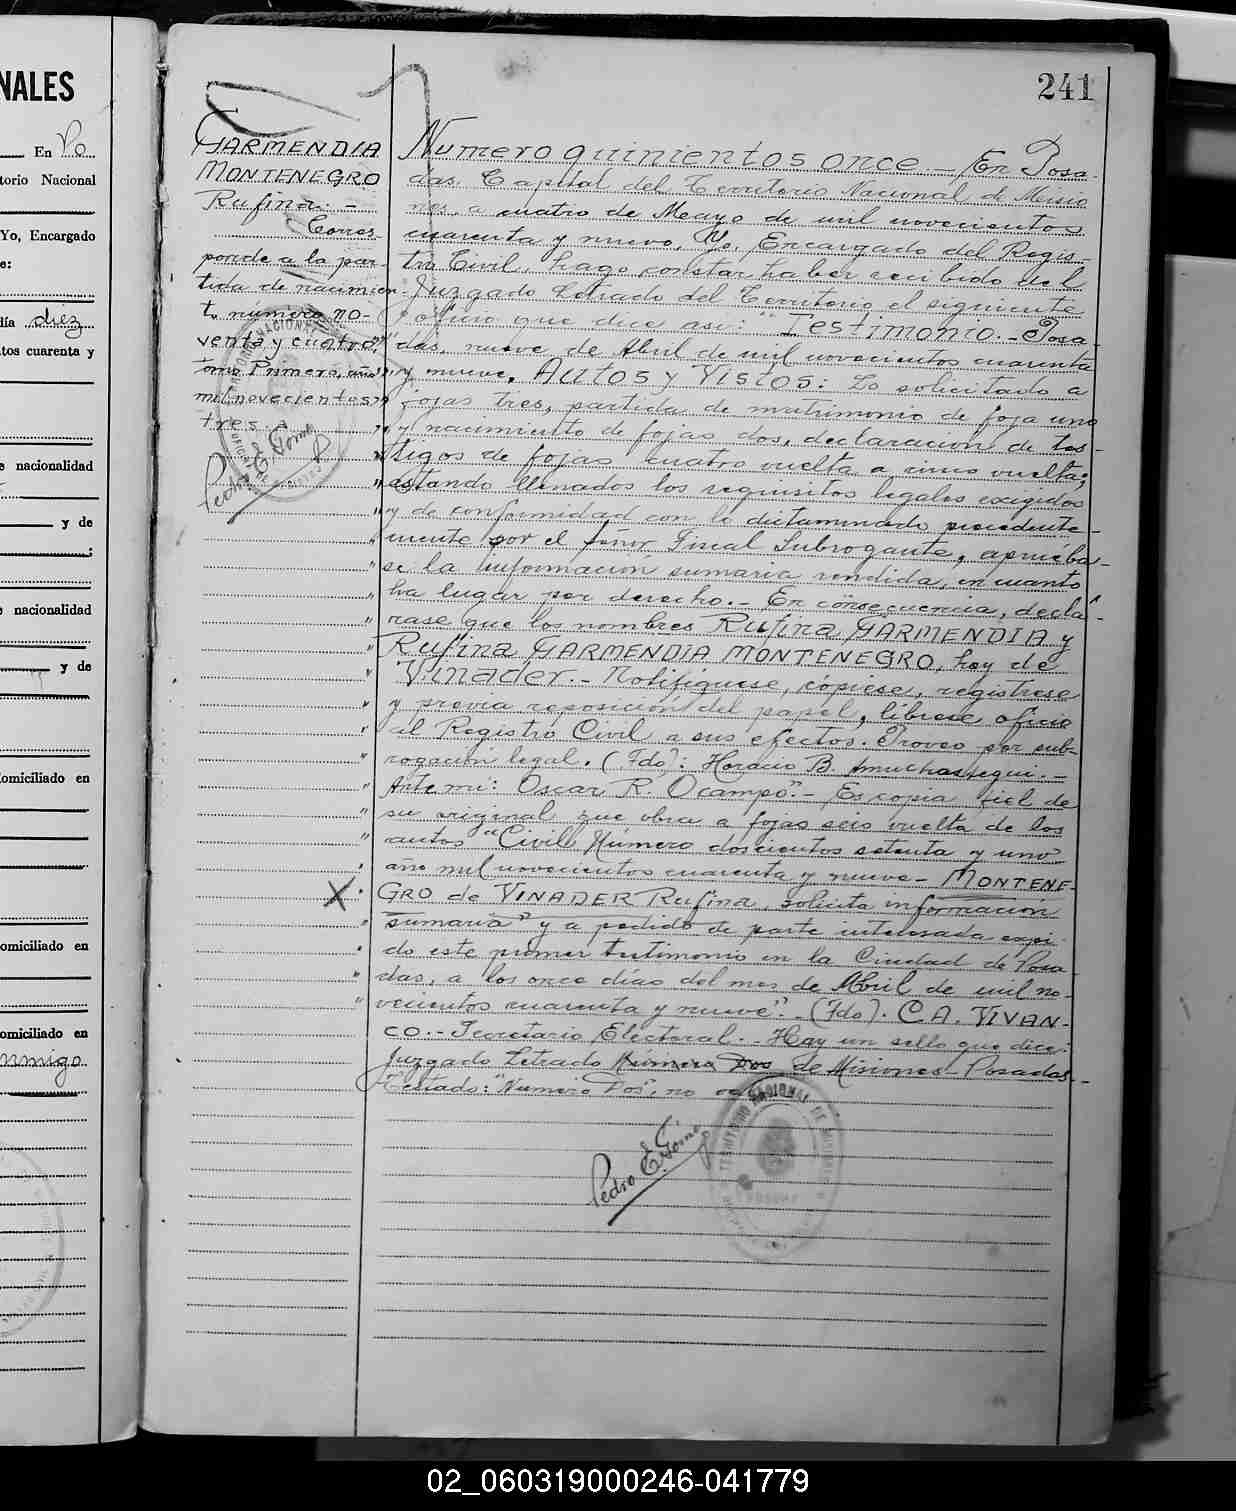 NALES
En Po
torio Nacional
Yo, Encargado
e:
día diez
tos cuarenta y
e nacionalidad
y de
;
e nacionalidad
y de
omiciliado en
omiciliado en
omiciliado en
241
GARMENDIA
MONTENEGRO
Rufina. -
Corres-
ponde a la par-
tida de nacimien-
to número no-
venta y cuatro,
tomo Primero, año
mil novecientos
tres.-
Pedro E. Gomez
Número quinientos once. - En Posa-
das, Capital del Territorio Nacional de Misio
nes, a cuatro de Mayo de mil novecientos
cuarenta y nueve, Yo, Encargado del Regis-
tro Civil, hago constar haber recibido del
Juzgado Letrado del Territorio el siguiente
oficio que dice así: "Testimonio. - Posa-
" das, nueve de Abril de mil novecientos cuarenta
" y nueve. AUTOS y VISTOS: Lo solicitado a
" fojas tres, partida de matrimonio de foja uno
" y nacimiento de fojas dos, declaración de tes-
" tigos de fojas cuatro vuelta a cinco vuelta;
" estando llenados los requisitos legales exigidos
" y de conformidad con lo dictaminado precedente-
" mente por el señor Fiscal Subrogante, aprueba-
" se la información sumaria rendida, en cuanto
" ha lugar por derecho. - En consecuencia, declá-
" rase que los nombres Rufina GARMENDIA y
" Rufina GARMENDIA MONTENEGRO, hoy de
" Vinader. - Notifíquese, cópiese, regístrese
" y previa reposición del papel, líbrese oficio
" al Registro Civil a sus efectos. Proveo por sub-
" rogación legal. (Fdo): Horacio B. Amuchastegui. -
" Ante mí: Oscar R. Ocampo". - Es copia fiel de
" su original que obra a fojas seis vuelta de los
" autos "Civil Número doscientos setenta y uno
" año mil novecientos cuarenta y nueve - MONTENE-
X " GRO de VINADER Rufina, solicita información
" sumaria" y a pedido de parte interesada expi-
" do este primer testimonio en la Ciudad de Posa-
" das, a los once días del mes de Abril de mil no-
" vecientos cuarenta y nueve". - (Fdo). C.A. VIVAN-
CO. - Secretario Electoral. - Hay un sello que dice:
Juzgado Letrado Número Dos de Misiones - Posadas. -
Testado: "Número Dos", no
Pedro E. Gomez
TERRITORIO NACIONAL DE MISIONES
02_060319000246-041779